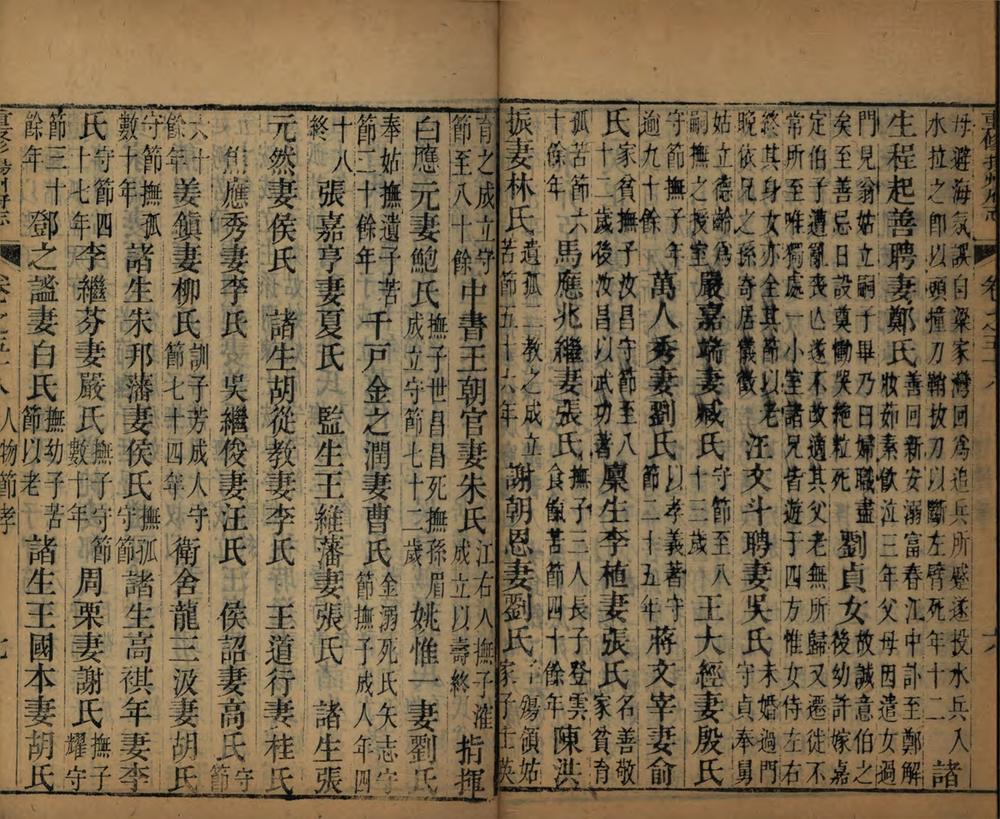 重修揚州府志
卷之五十八
六
母避海氛誤自梁家灣回爲追兵所蹙遂投水兵入
水拉之卽以頭撞刀鞘拔刀以斷左臂死年十二
諸
生程起善聘妻鄭氏
善回新安溺富春江中訃至鄭解
妝茹素飲泣三年父母因遣女過
門見翁姑立嗣子畢乃曰婦職盡
矣至善忌日設奠慟哭絶粒死
劉貞女
故誠意伯之
後幼許嫁嘉
定伯子遭亂喪亾遂不改適其父老無所歸又遷徙不
常所至唯獨處一小室諸兄皆遊于四方惟女侍左右
終其身女亦全其節以老
晚依兄之孫奇居儀徵
汪文斗聘妻吳氏
未婚過門
守貞奉舅
姑立德齡爲
嗣撫之授室
嚴嘉端妻臧氏
守節至八
十三歲
王大經妻殷氏
守節撫子年
逾九十餘
萬人秀妻劉氏
以孝義著守
節二十五年
蔣文宰妻俞
氏
家貧撫子汝昌守節至八
十二歲後汝昌以武功著
廩生李植妻張氏
名善敬
家貧育
孤苦節六
十餘年
馬應兆繼妻張氏
撫子三人長子登雲
食餼苦節四十餘年
陳洪
振妻林氏
遺孤二教之成立
苦節五十六年
謝朝恩妻劉氏
子殤領姑
家子士英
育之成立守
節至八十餘
中書王朝官妻朱氏
江右人撫子漼
成立以壽終
指揮
白應元妻鮑氏
撫子世昌昌死撫孫眉
成立守節七十二歲
姚惟一妻劉氏
奉姑撫遺子苦
節二十餘年
千戸金之潤妻曹氏
金溺死氏矢志守
節撫子成人年四
十八
終
張嘉亨妻夏氏
監生王維藩妻張氏
諸生張
元然妻侯氏
諸生胡從教妻李氏
王道行妻桂氏
焦應秀妻李氏
吳繼俊妻汪氏
侯詔妻高氏
守
節
六十
餘年
姜鎮妻柳氏
訓子芳成人守
節七十四年
衛舍龍三汲妻胡氏
守節撫孤
數十年
諸生朱邦藩妻侯氏
撫孤
守節
諸生高祺年妻李
氏
守節四
十七年
李繼芬妻嚴氏
撫子守節
數十年
周栗妻謝氏
撫子
耀守
節三十
餘年
鄧之謐妻白氏
撫幼子苦
節以老
諸生王國本妻胡氏
重修揚州府志
卷之五十八
人物節孝
七